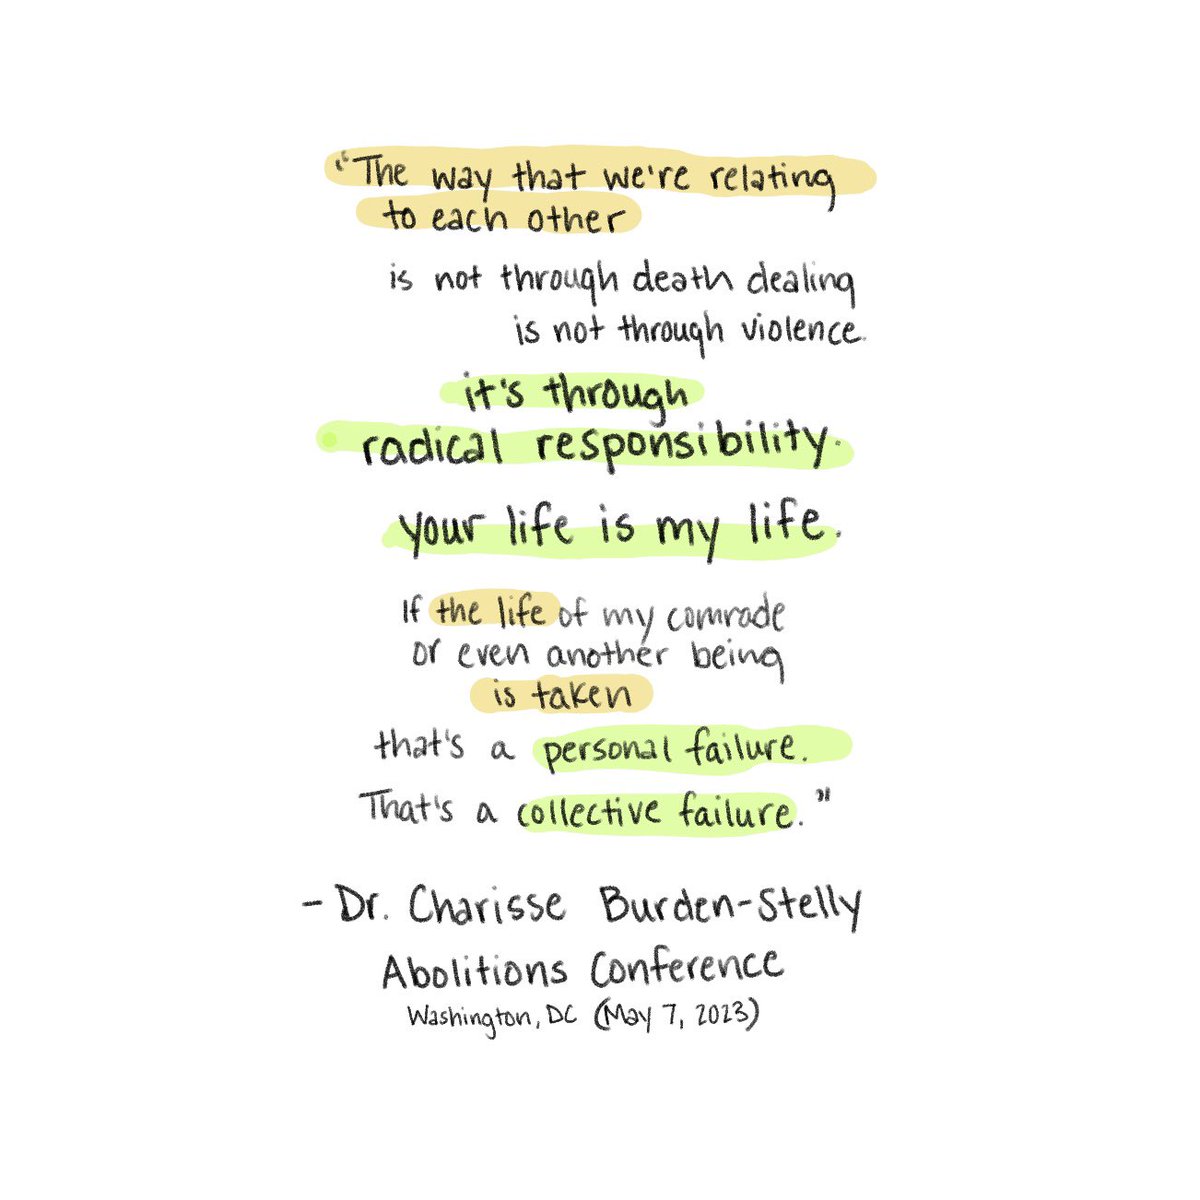 "The way that we're relating
to each other
is not through death dealing
is not through violence.
it's through
radical responsibility.
your life is my life.
If the life of my comrade
or even another being
is taken
that's a personal failure.
That's a collective failure."
- Dr. Charisse Burden-Stelly
Abolitions Conference
Washington, DC (May 7, 2023)